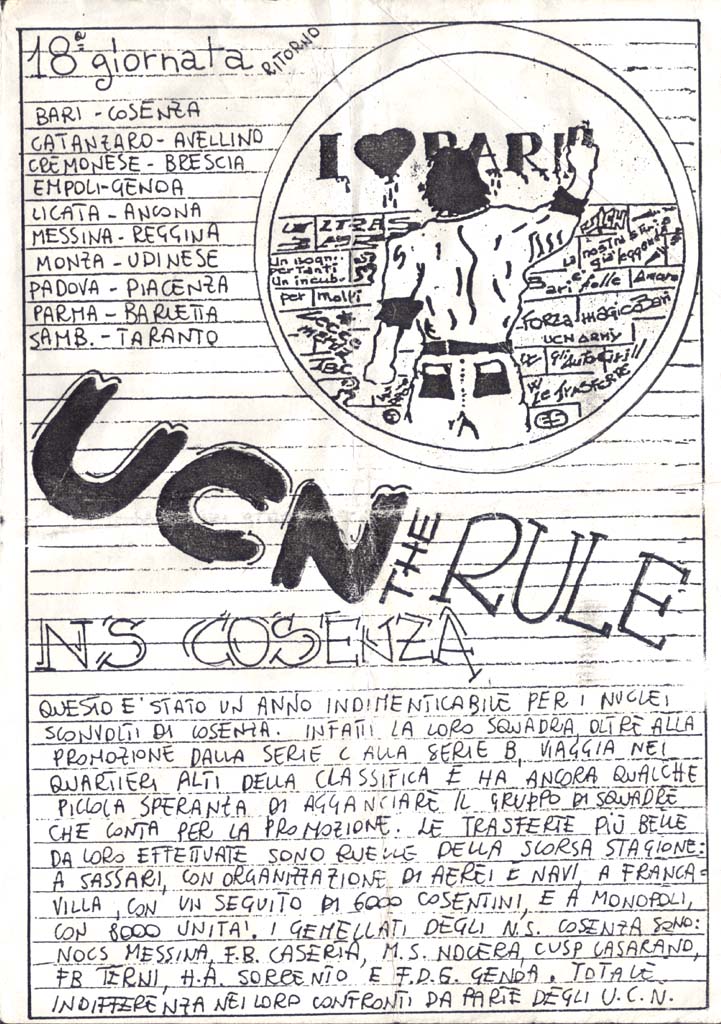 18ª giornata RITORNO
BARI - COSENZA
CATANZARO - AVELLINO
CREMONESE - BRESCIA
EMPOLI - GENOA
LICATA - ANCONA
MESSINA - REGGINA
MONZA - UDINESE
PADOVA - PIACENZA
PARMA - BARLETTA
SAMB. - TARANTO
I ♥ BARI
ULTRAS
Un sogno
per tanti
Un incub.
per molti
la nostra storia
già leggenda
Bari folle Amore
Forza magico Bari
UCN ARMY
W gli Autogrill
W LE TRASFERTE
UCN THE RULE
N.S COSENZA
QUESTO E' STATO UN ANNO INDIMENTICABILE PER I NUCLEI
SCONVOLTI DI COSENZA. INFATTI LA LORO SQUADRA, OLTRE ALLA
PROMOZIONE DALLA SERIE C ALLA SERIE B, VIAGGIA NEI
QUARTIERI ALTI DELLA CLASSIFICA E HA ANCORA QUALCHE
PICCOLA SPERANZA DI AGGANCIARE IL GRUPPO DI SQUADRE
CHE CONTA PER LA PROMOZIONE. LE TRASFERTE PIÙ BELLE
DA LORO EFFETTUATE SONO QUELLE DELLA SCORSA STAGIONE:
A SASSARI, CON ORGANIZZAZIONE DI AEREI E NAVI, A FRANCA-
VILLA, CON UN SEGUITO DI 6000 COSENTINI, E A MONOPOLI,
CON 8000 UNITA'. I GEMELLATI DEGLI N.S. COSENZA SONO:
NOCS MESSINA, F.B. CASERTA, M.S. NOCERA, CUSP CASARANO,
FB TERNI, H.A. SORRENTO E F.D.G. GENOA. TOTALE
INDIFFERENZA NEI LORO CONFRONTI DA PARTE DEGLI U.C.N.